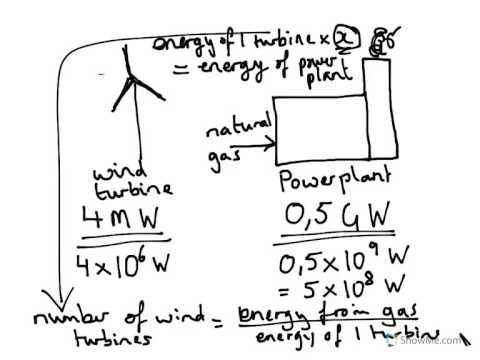 energy of 1 turbine x x
= energy of power plant
natural gas
wind turbine
Powerplant
4 MW
0,5 GW
4 x 10⁶ W
0,5 x 10⁹ W
= 5 x 10⁸ W
number of wind turbines = energy from gas
energy of 1 turbine
ShowMe.com